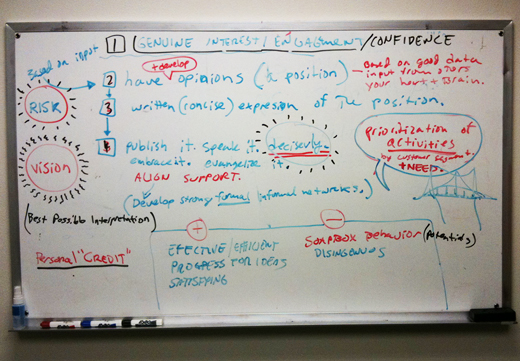 1 GENUINE INTEREST / ENGAGMENT / CONFIDENCE
Based on input
+ develop
2 have opinions (& position) — Based on good data
input from others
your heart + Brain.
RISK
3 written (concise) expression of the position.
4 publish it. speak it. decisively.
embrace it. evangelize it.
ALIGN SUPPORT.
prioritization of
activities
by customer segment.
+ NEED.
vision
(Develop strong formal informal networks.)
(Best Possible Interpretation)
+
EFFECTIVE / EFFICIENT
PROGRESS FOR IDEAS
SATISFYING
—
SOAPBOX BEHAVIOR (potentially)
DISINGENUOUS
Personal "CREDIT"